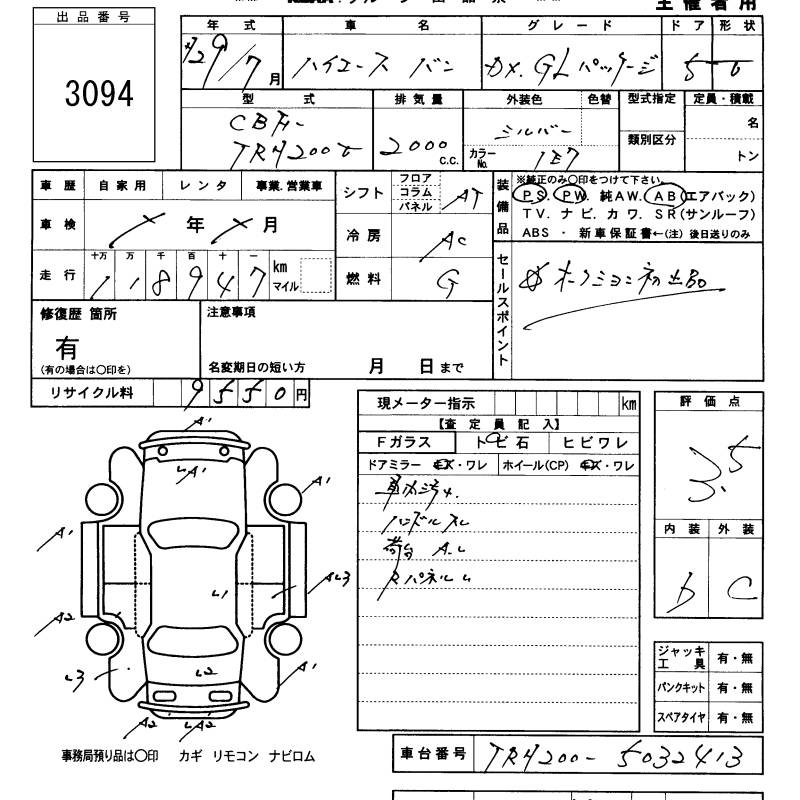 主催者用
出品番号
3094
年式 車名 グレード ドア 形状
H29/7月 ハイエース バン DX. GLパッケージ 5 - 6
型式 排気量 外装色 色替 型式指定 定員・積載
CBF-
TRH200V
2000 c.c.
シルバー
カラーNo. 1E7
類別区分
名
トン
車歴 自家用 レンタ 事業.営業車
シフト フロア コラム パネル AT
装備品
※純正のみ○印をつけて下さい。
PS. PW. 純AW. AB(エアバック)
TV. ナビ. カワ. SR(サンルーフ)
ABS ・ 新車保証書←(注)後日送りのみ
車検 年 月
冷房 AC
走行 十万 万 千 百 十 一
1 1 8 9 4 7 km マイル
燃料 G
セールスポイント
修復歴 箇所
有
(有の場合は○印を)
注意事項
名変期日の短い方 月 日まで
リサイクル料 9 5 5 0 円
現メーター指示 km
【査定員記入】
Fガラス トビ石 ヒビワレ
ドアミラー キズ・ワレ ホイール(CP) キズ・ワレ
ハンドルスレ
荷台 A.L
Rパネル L
評価点
3.5
内装 外装
D C
A1
LA1
A1
A1
A1
AL3
L1
A2
L3
L2
A1
A2
LA2
ジャッキ
工具 有・無
パンクキット 有・無
スペアタイヤ 有・無
事務局預り品は○印 カギ リモコン ナビロム
車台番号 TRH200-5032413